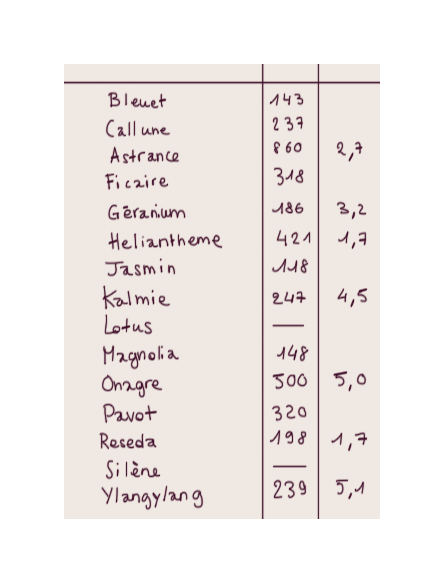 Bleuet 143
Callune 237
Astrance 860 2,7
Ficaire 318
Géranium 186 3,2
Heliantheme 421 1,7
Jasmin 118
Kalmie 247 4,5
Lotus —
Magnolia 148
Onagre 500 5,0
Pavot 320
Reseda 198 1,7
Silène —
Ylangylang 239 5,1